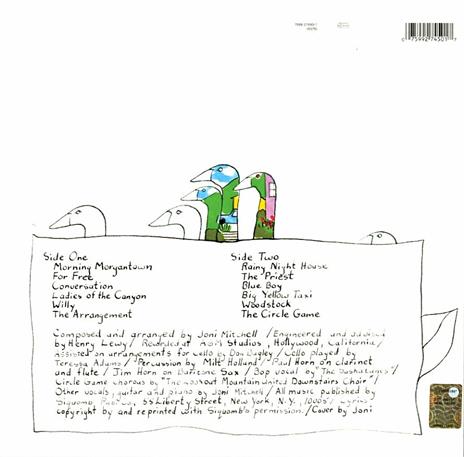 0 75992 74501 7
Side One
Morning Morgantown
For Free
Conversation
Ladies of the Canyon
Willy
The Arrangement
Side Two
Rainy Night House
The Priest
Blue Boy
Big Yellow Taxi
Woodstock
The Circle Game
Composed and arranged by Joni Mitchell / Engineered and
by Henry Lewy / Recorded at A&M Studios, Hollywood, California /
Assisted on arrangements for cello by Don Bagley / Cello played by
Teressa Adams / Percussion by Milt Holland / Paul Horn on clarinet
and flute / Jim Horn on Baritone Sax / Bop vocal by "The
Circle Game chorus by "The Lookout Mountain United Downstairs Choir" /
Other vocals, guitar and piano by Joni Mitchell / All music published by
Siquomb, 55 Liberty Street, New York, N.Y., 10005 / Lyrics
copyright by and reprinted with Siquomb's permission. / Cover by Joni